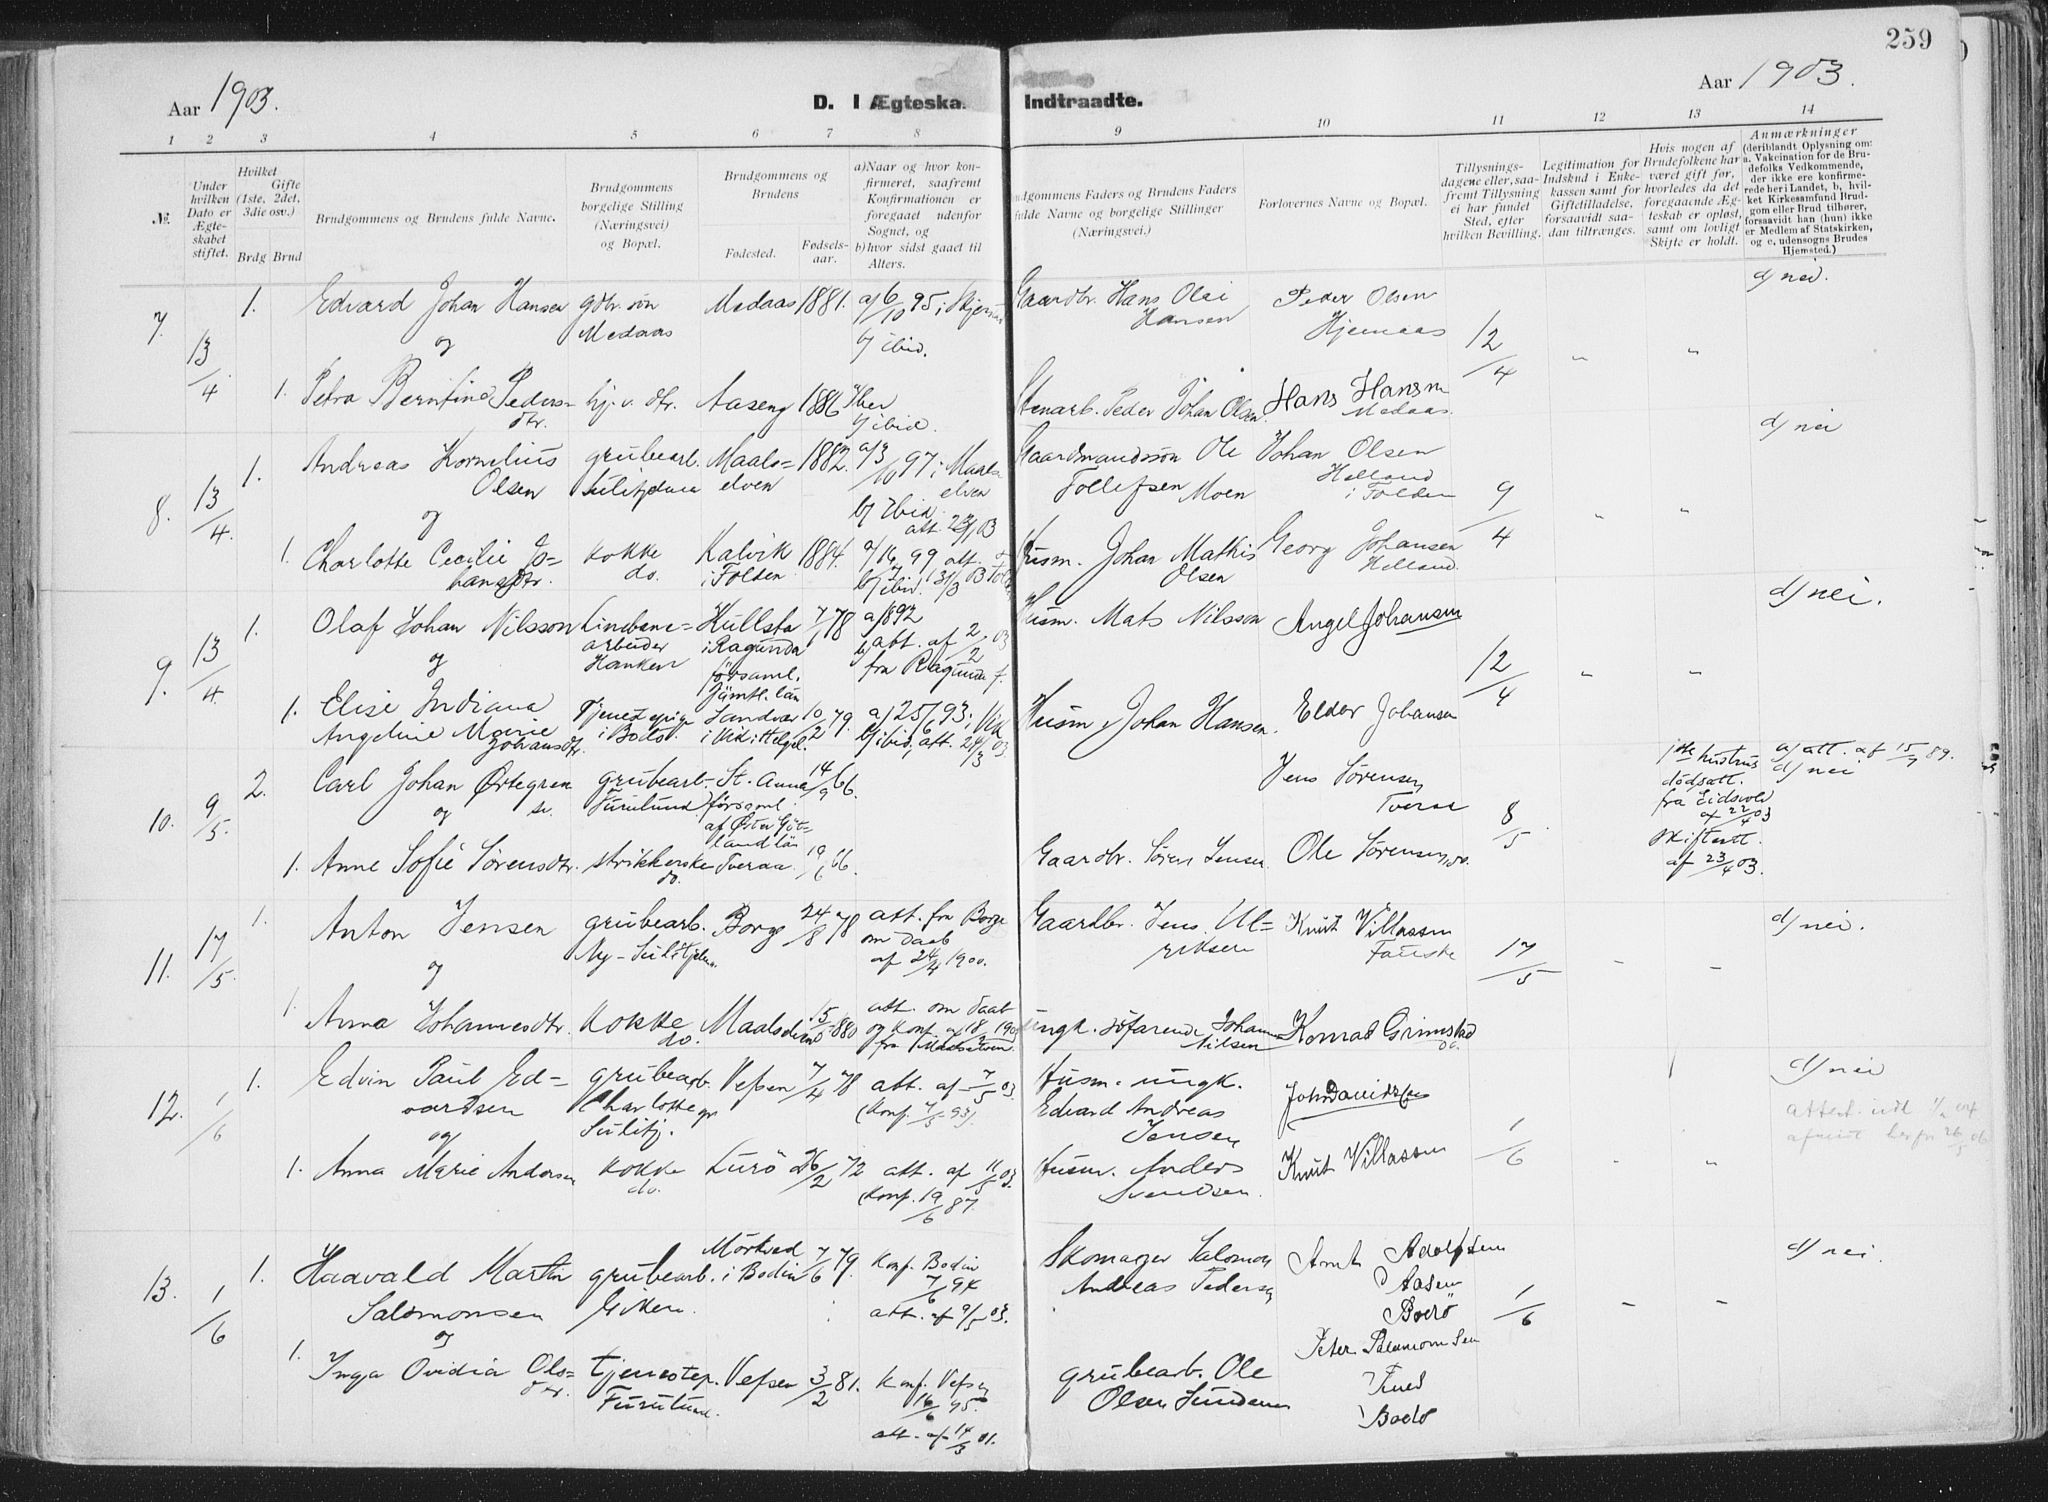 259
Aar 1903.
D. I Ægteska. Indtraadte.
Aar 1903.
1 2 3 4 5 6 7 8 9 10 11 12 13 14
№.
Under hvilken Dato er Ægteskabet stiftet.
Hvilket Gifte (1ste, 2det, 3die osv.)
Brdg Brud
Brudgommens og Brudens fulde Navne.
Brudgommens borgelige Stilling (Næringsvei) og Bopæl.
Brudgommens og Brudens
Fødested. Fødselsaar.
a) Naar og hvor konfirmeret, saafremt Konfirmationen er foregaaet udenfor Sognet, og
b) hvor sidst gaaet til Alters.
udgommens Faders og Brudens Faders fulde Navne og borgelige Stillinger (Næringsvei.)
Forlovernes Navne og Bopæl.
Tillysningsdagene eller, saafremt Tillysning ei har fundet Sted, efter hvilken Bevilling.
Legitimation for Indskud i Enkekassen samt for Giftetilladelse, forsaavidt saadan tiltrænges.
Hvis nogen af Brudefolkene har været gift før, hvorledes da det foregaaende Ægteskab er opløst, samt om lovligt Skifte er holdt.
Anmærkninger (deriblandt Oplysning om: a. Vakcination for de Brudefolks Vedkommende, der ikke ere konfirmerede her i Landet, b, hvilket Kirkesamfund Brudgom eller Brud tilhører, forsaavidt han (hun) ikke er Medlem af Statskirken, og c, udensogns Brudes Hjemsted.)
7. 13/4 1. Edvard Johan Hansen gdbr. søn Medaas Medaas 1881. a) 6/10 95 i Skjerstad b) ibid. Gaardbr. Hans Olai Hansen Peder Olsen Hjemaas 12/4 " " d) nei.
og
1. Petra Berntine Pedersdtr. hj. v. dtr. Aaseng 1886 her b) ibid. Stenarb. Peder Johan Olsen Hans Hansen Medaas
8. 13/4. 1. Andreas Kornelius Olsen grubearb. Sulitjelma Maalselven 1882. a) 3/10 97 i Maalselven b) Ibid. att. 03 Gaardmandssøn Ole Tollefsen Moen Johan Olsen Helland i Folden 9/4 " " d) nei
og
1. Charlotte Cecilie Johansdtr. kokke do. Kalvik i Folden 1884. 99 att. b) ibid. 31/3 03 Husm. Johan Mathis Olsen Georg Johansen Helland
9. 13/4 1. Olaf Johan Nilsson Linebanearbeider Hanken Kullsta i Ragunda församl. Jämtl. län 7/1 78 a) 892 b) att. af 2/2 03 fra Ragunda f. Husm. Mats Nilsson Angel Johansen 12/4 " " d) nei.
og
1. Elise Indiana Angeline Marie Johansdtr. Tjenestepige i Bodø. Sandvær i Vik i Helgel. 10/2 79. a) 25/6 93 i Vik b) ibid, att. 24/3 03 Husm. Johan Hansen. Elder Johansen
10. 9/5. 2. Carl Johan Ørtegren grubearb. Furulund St. Anna församl. af Øster Götland län 14/9 66. Jens Sørensen Tveraa 8/5 1ste hustrus dødsatt. fra Eidsvold af 22/4 03 skifteatt. af 23/4 03. a) att. af 15/7 89. d) nei
og
1. Anne Sofie Sørensdtr. strikkerske do. Tveraa. 19/6 66. Gaardbr. Søren Jensen Ole Sørensen, do.
11. 17/5. 1. Anton Jensen grubearb. Ny-Sulitjelma. Borge 24/8 78 att. fra Borge om daab af 24/4 1900. Gaardbr. Jens Ulriksen Knut Villassen Fauske 17/5 " " d) nei.
og
1. Anna Johannesdtr. kokke do. Maalselven 15/ 880 att. om daab og konf. af 18/ 190 fra Maalselven. ungk. søfarende Johannes Nilsen Konrad Grimstad do.
12. 1/6 1. Edvin Paul Edvardsen grubearb. Charlotte gr Sulitj. Vefsen 7/4 78 att. af 7/5 03 (Konf. 7/5 93). Husm. ungk. Edvard Andreas Jensen John Davidsen 1/6 " " d) nei
attest. udt
og
1. Anna Marie Andersen kokke do. Lurö 26/2 72 att. af 11/5 03. (Konf. 19/6 87. Husm. Anders Svendsen. Knut Villassen
13. 1/6 1. Haavald Martin Salomonsen grubearb. Giken. Mörkved i Bodin 7/6 79. Konf. Bodin 7/6 94 att. af 9/5 03. Skomager Salomon Andreas Pedersen Arnt Adolfsen Aasen Bodö 1/6 " " d) nei.
og
1. Inga Ovidia Olsdtr. tjenestep. Furulund. Vefsen 3/2 81. Konf. Vefsen 16/6 95. att. af 14/3 01. grubearb. Ole Olsen Sundenes Peter Salamonsen Bodö